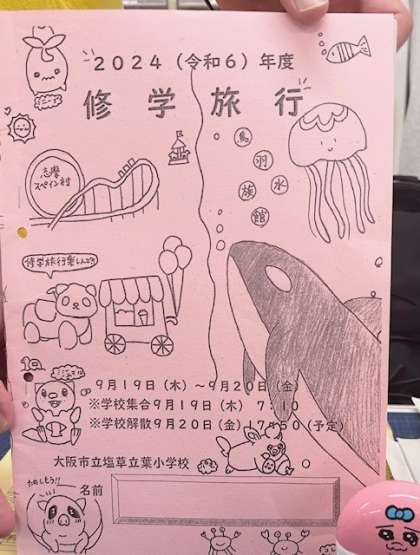 2024（令和6）年度
修学旅行
鳥羽水族館
志摩
スペイン村
修学旅行楽しんで!!
9月19日（木）～9月20日（金）
※学校集合9月19日（木）　7:10
※学校解散9月20日（金）17:50（予定）
大阪市立塩草立葉小学校
名前